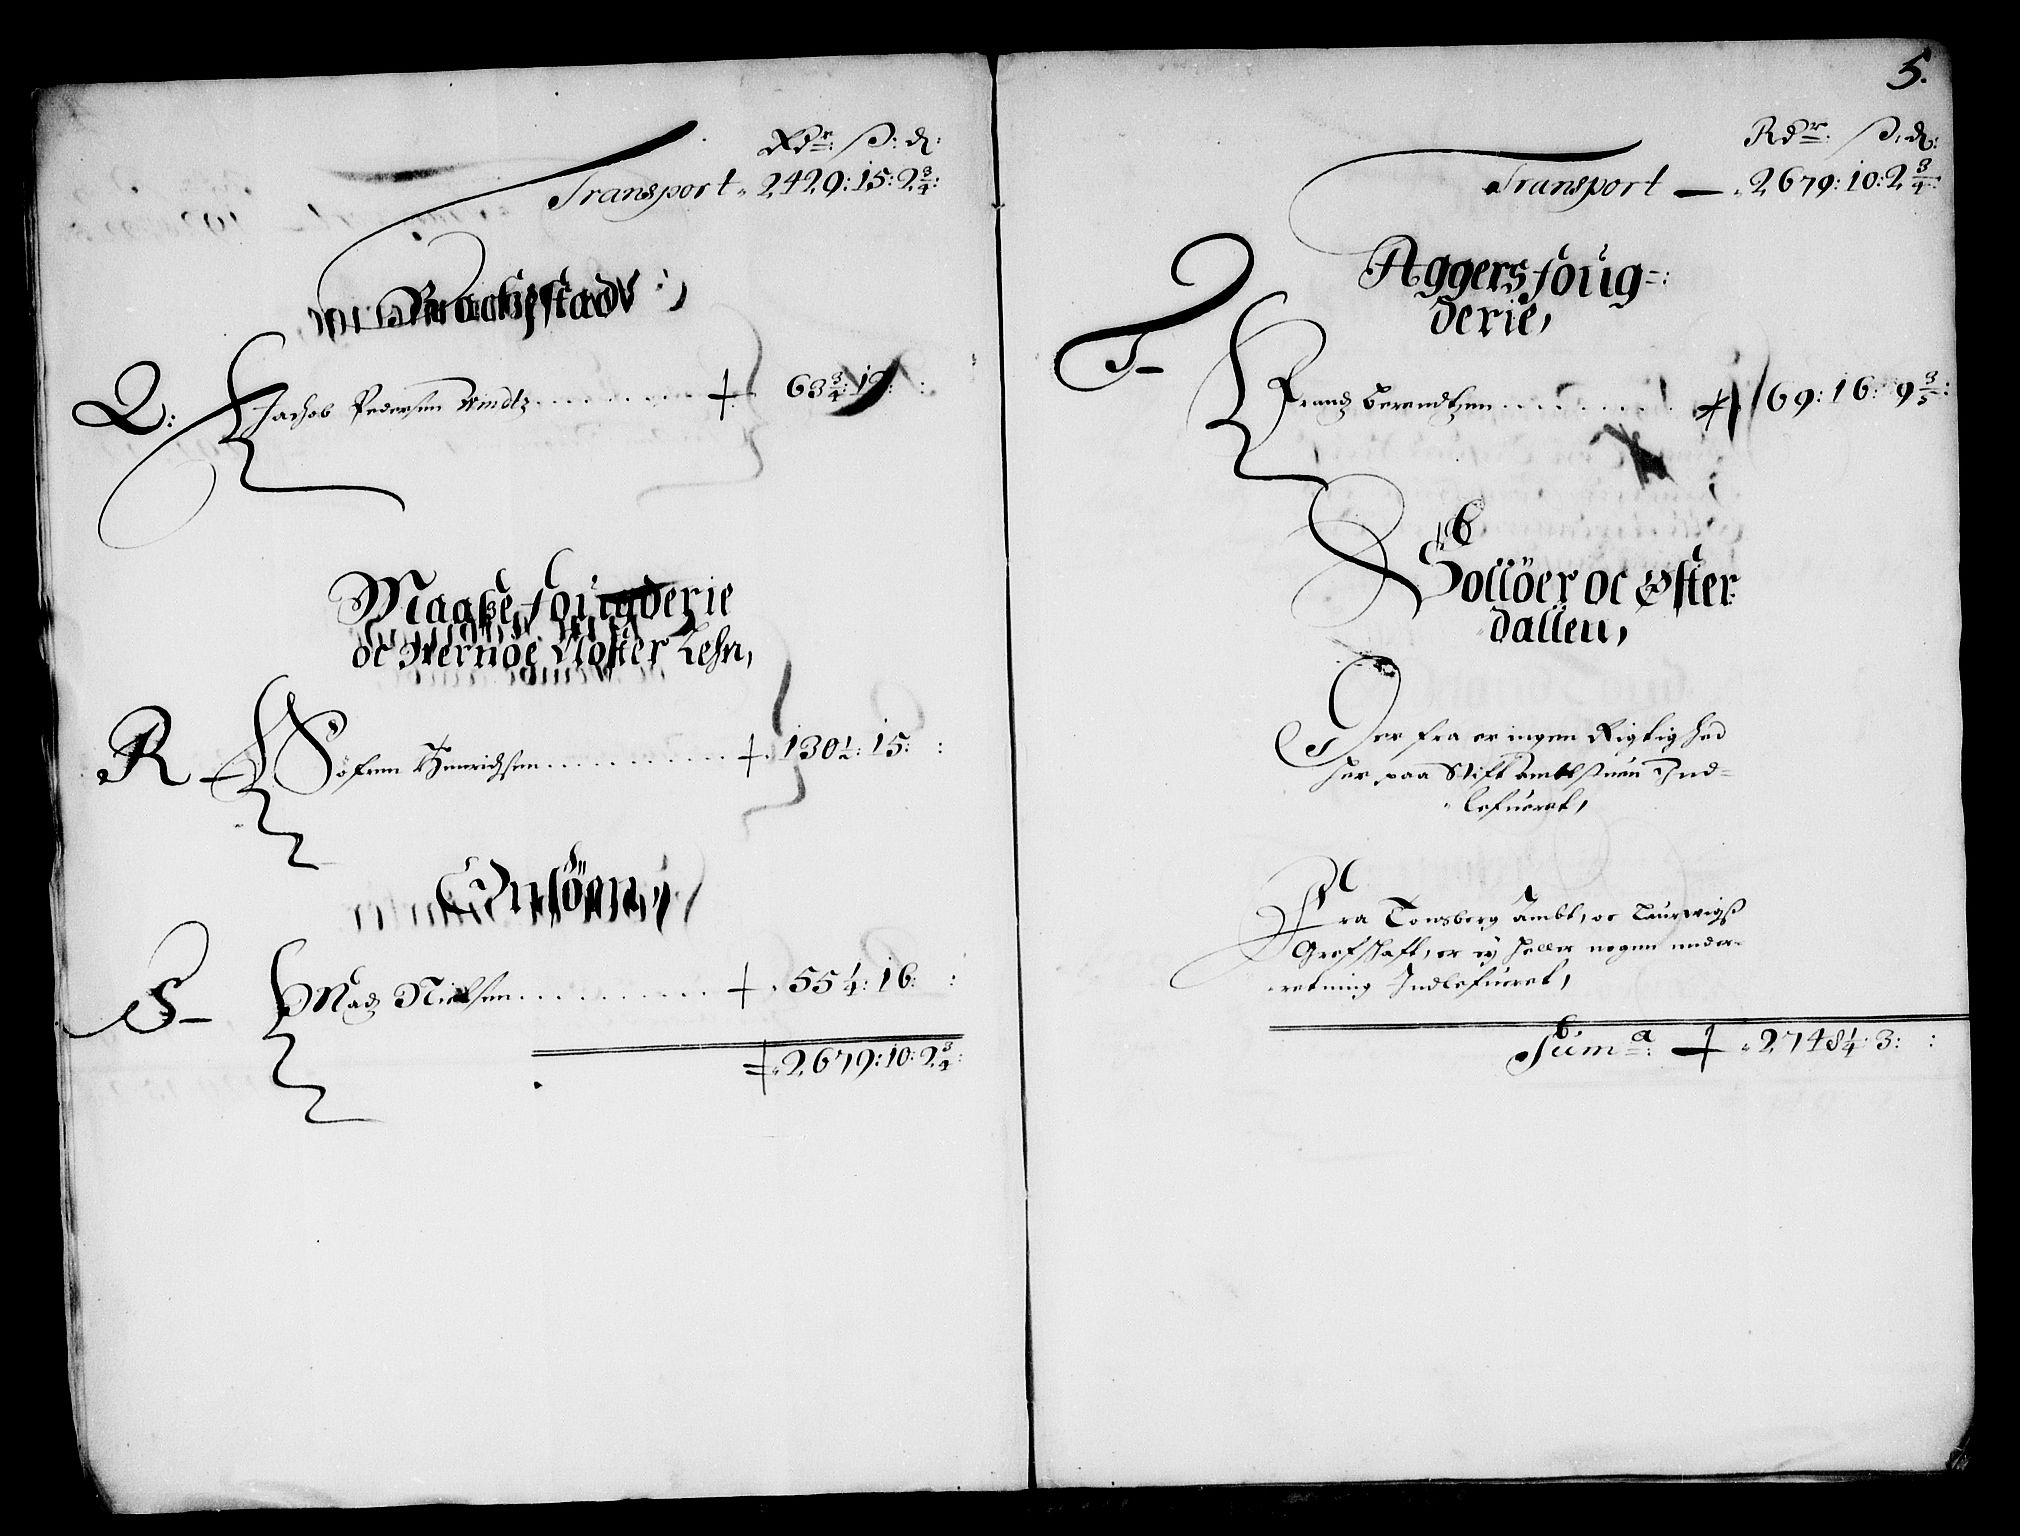 Rdr: ß: d:
Transport 2429: 15: 2 3/4:
Brachestadt
Q: Jachob Pedersen Arndtz .......... 63 3/4: 19: :
Maaße fougderie
oc Vernøe Kloster Lehn,
R Søfren Henrichsen .......... 130 1/2: 15: :
Onsöen,
S Madz Nielsen .......... 55 1/4: 16: :
2679: 10: 2 3/4:
5.
Rdr: ß: d:
Transport 2679: 10: 2 3/4:
Aggers foug=
derie,
T Frandz Berendtzen ........ 69: 16: 9 3/5:
Sollöer oc Øster
dallen,
Der fra er ingen Rigtighed
her paa Stift Ambtstuen Ind=
lefueret,
Fra Tonsberg Ambt, oc Laurwigß
Grefschaft, er ey heller nogen under=
retning Indlefueret,
Suma 2748 1/4: 3: :